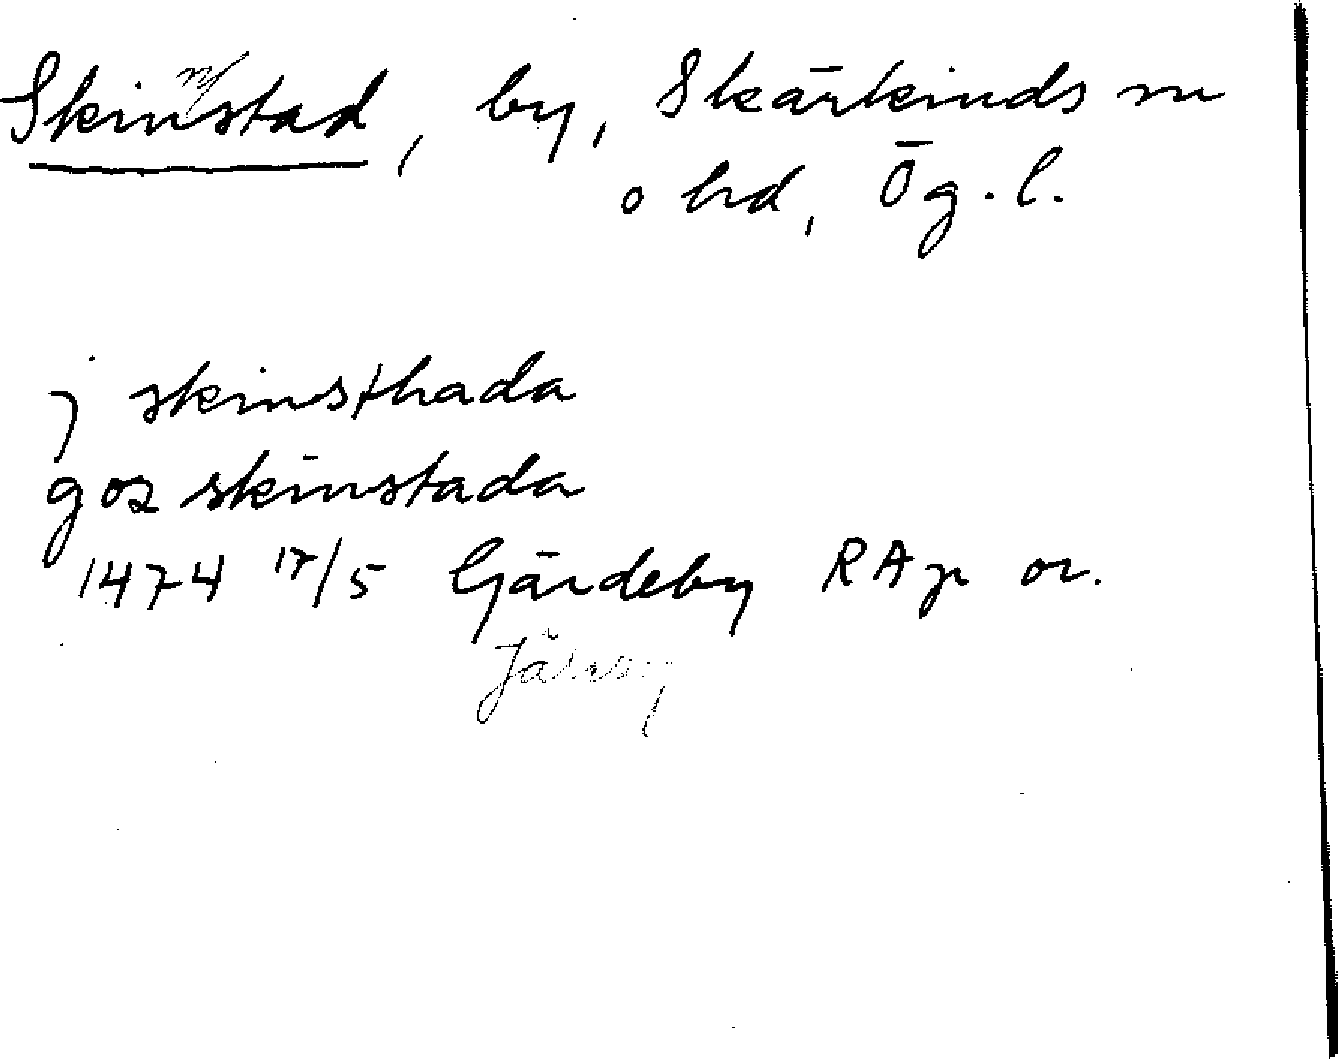 Skinnstad, by, Skärkinds sn
o hd, Ög. l.
j skinsthada
goz skinstada
1474 17/5 Gärdeby RAp or.